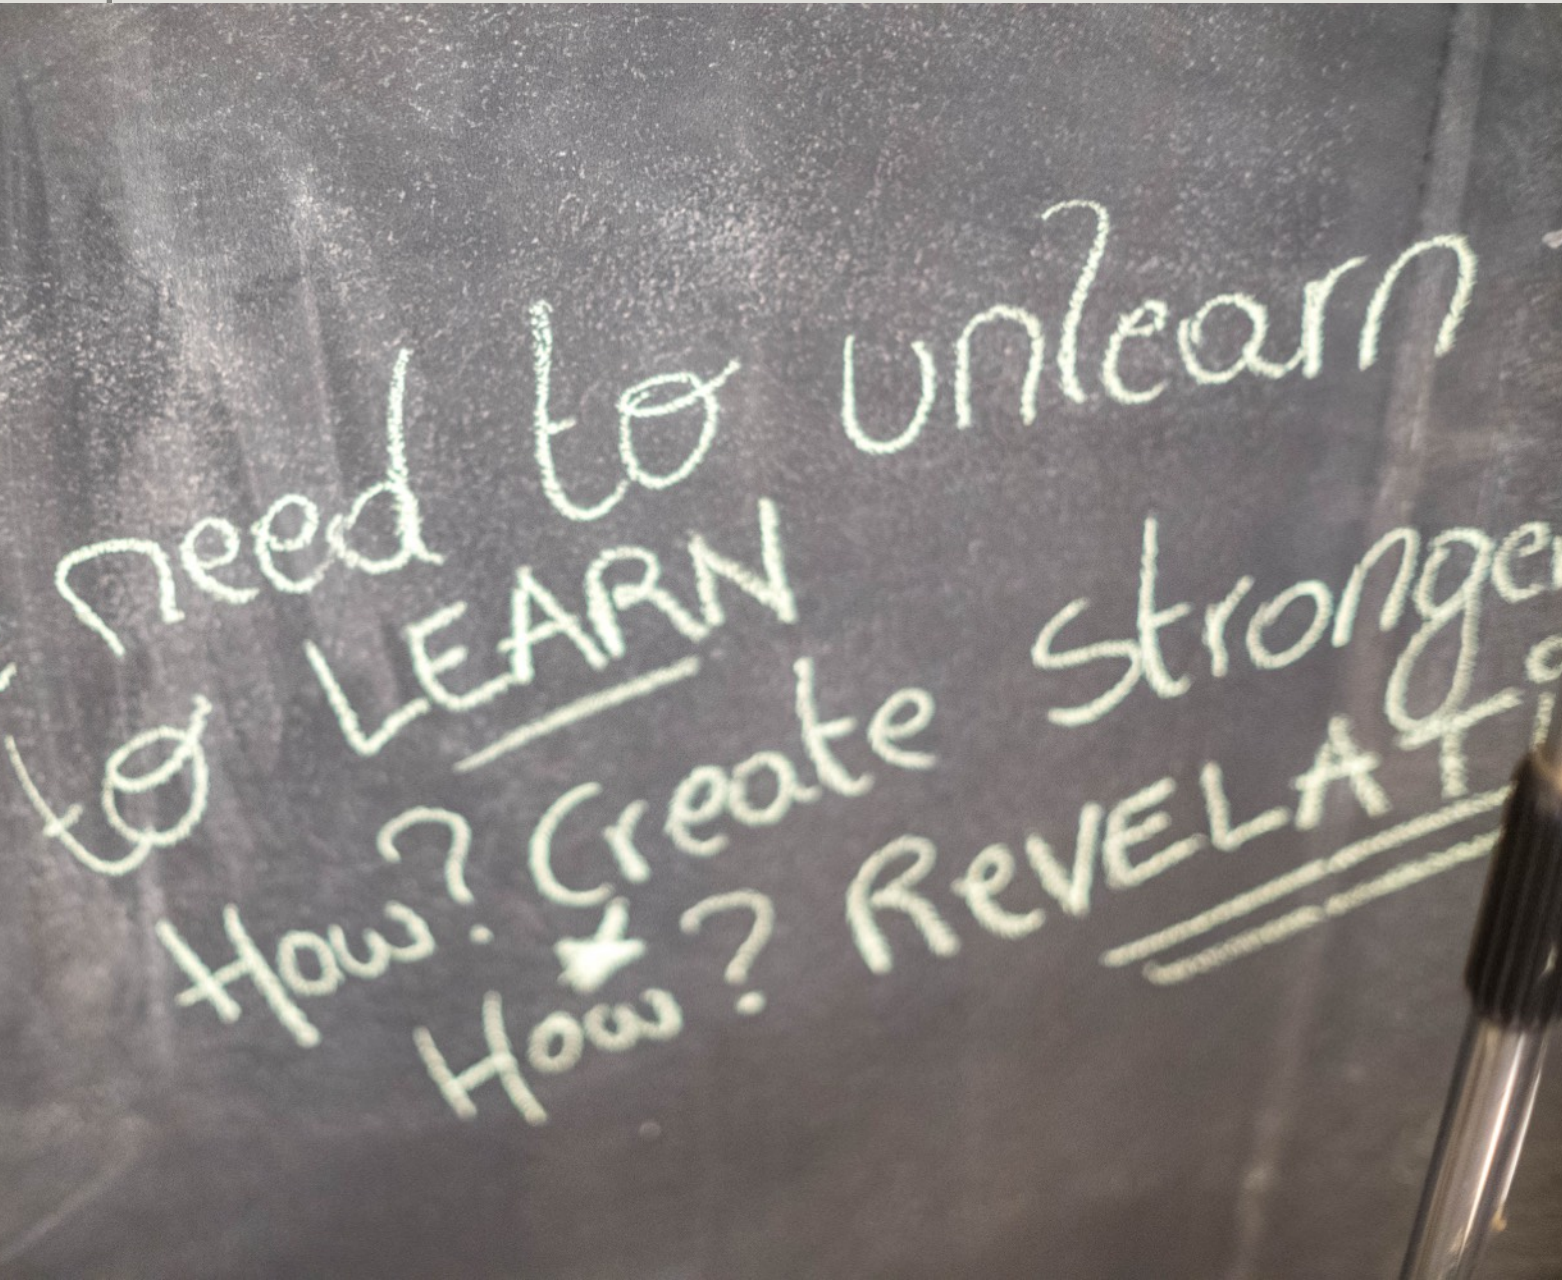 need to unlearn
to LEARN
How? Create stronger
How? REVELAT